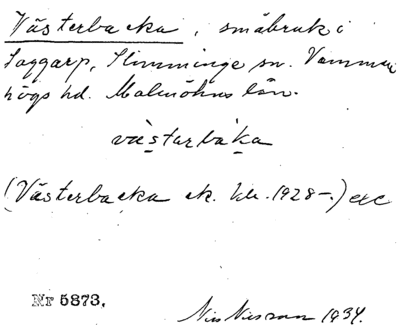 Västerbacka, småbruk i
Saggarp, Slimminge sn. Vemmen
högs hd. Malmöhus län.
västarbaka
(Västerbacka ek. kb. 1928–.) etc
Nr 5873.
Nils Nilsson 1934.